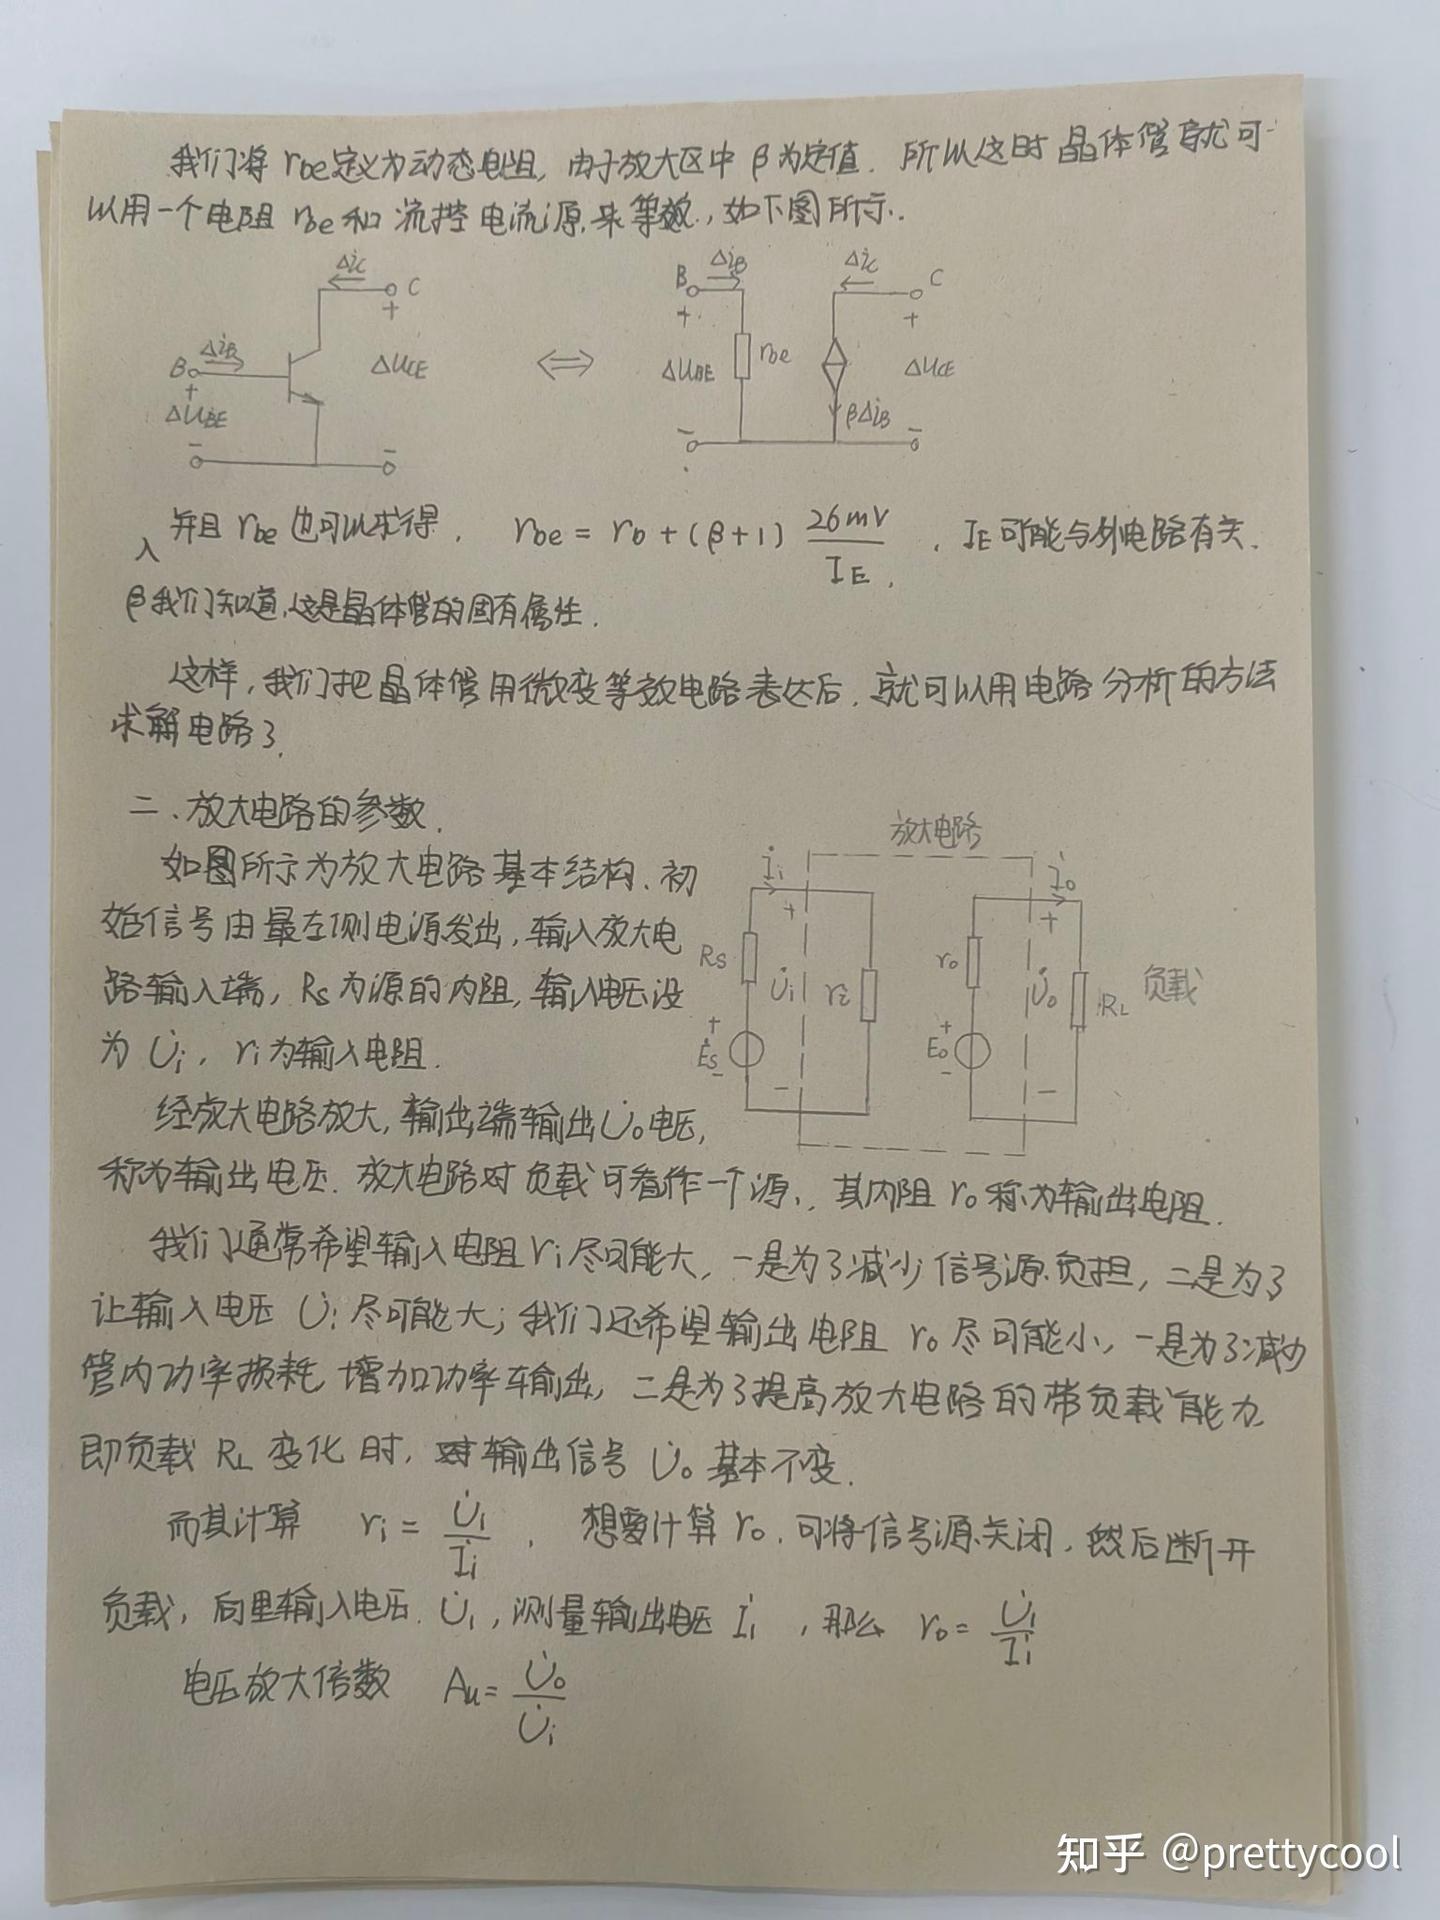 我们将 rbe定义为动态电阻, 由于放大区中 β为定值. 所以这时 晶体管就可
以用一个电阻 rbe和 流控电流源来等效, 如下图所示.
ΔiC
C
+
ΔiB
B
+
ΔUBE
ΔUCE
-
-
⟺
B
ΔiB
+
ΔUBE
rbe
-
ΔiC
C
+
ΔUCE
βΔiB
-
并且 rbe 也可以求得, rbe = rb + (β+1) 26mV / IE . IE可能与外电路有关.
β我们知道,这是晶体管的固有属性.
这样, 我们把晶体管用微变等效电路表达后, 就可以用电路分析的方法
求解电路了.
二. 放大电路的参数.
如图所示为放大电路基本结构. 初
始信号由最左侧电源发出, 输入放大电
路输入端, Rs为源的内阻, 输入电压设
为 U̇i, ri为输入电阻.
放大电路
İi
İo
+
+
Rs
U̇i
ri
ro
U̇o
RL
负载
+
Ės
-
+
Eo
-
-
-
经放大电路放大, 输出端输出U̇o电压,
称为输出电压. 放大电路对负载可看作一个源, 其内阻 ro称为输出电阻.
我们通常希望输入电阻 ri尽可能大, 一是为了减少信号源负担, 二是为了
让输入电压 U̇i 尽可能大; 我们还希望输出电阻 ro 尽可能小, 一是为了减少
管内功率损耗 增加功率输出, 二是为了提高放大电路的带负载能力
即负载 RL 变化时, 输出信号 U̇o 基本不变.
而其计算 ri = U̇i / İi , 想要计算 ro. 可将信号源关闭, 然后断开
负载, 向里输入电压 U̇i, 测量输出电压 İi , 那么 ro = U̇i / İi
电压放大倍数 Au = U̇o / U̇i
知乎 @prettycool